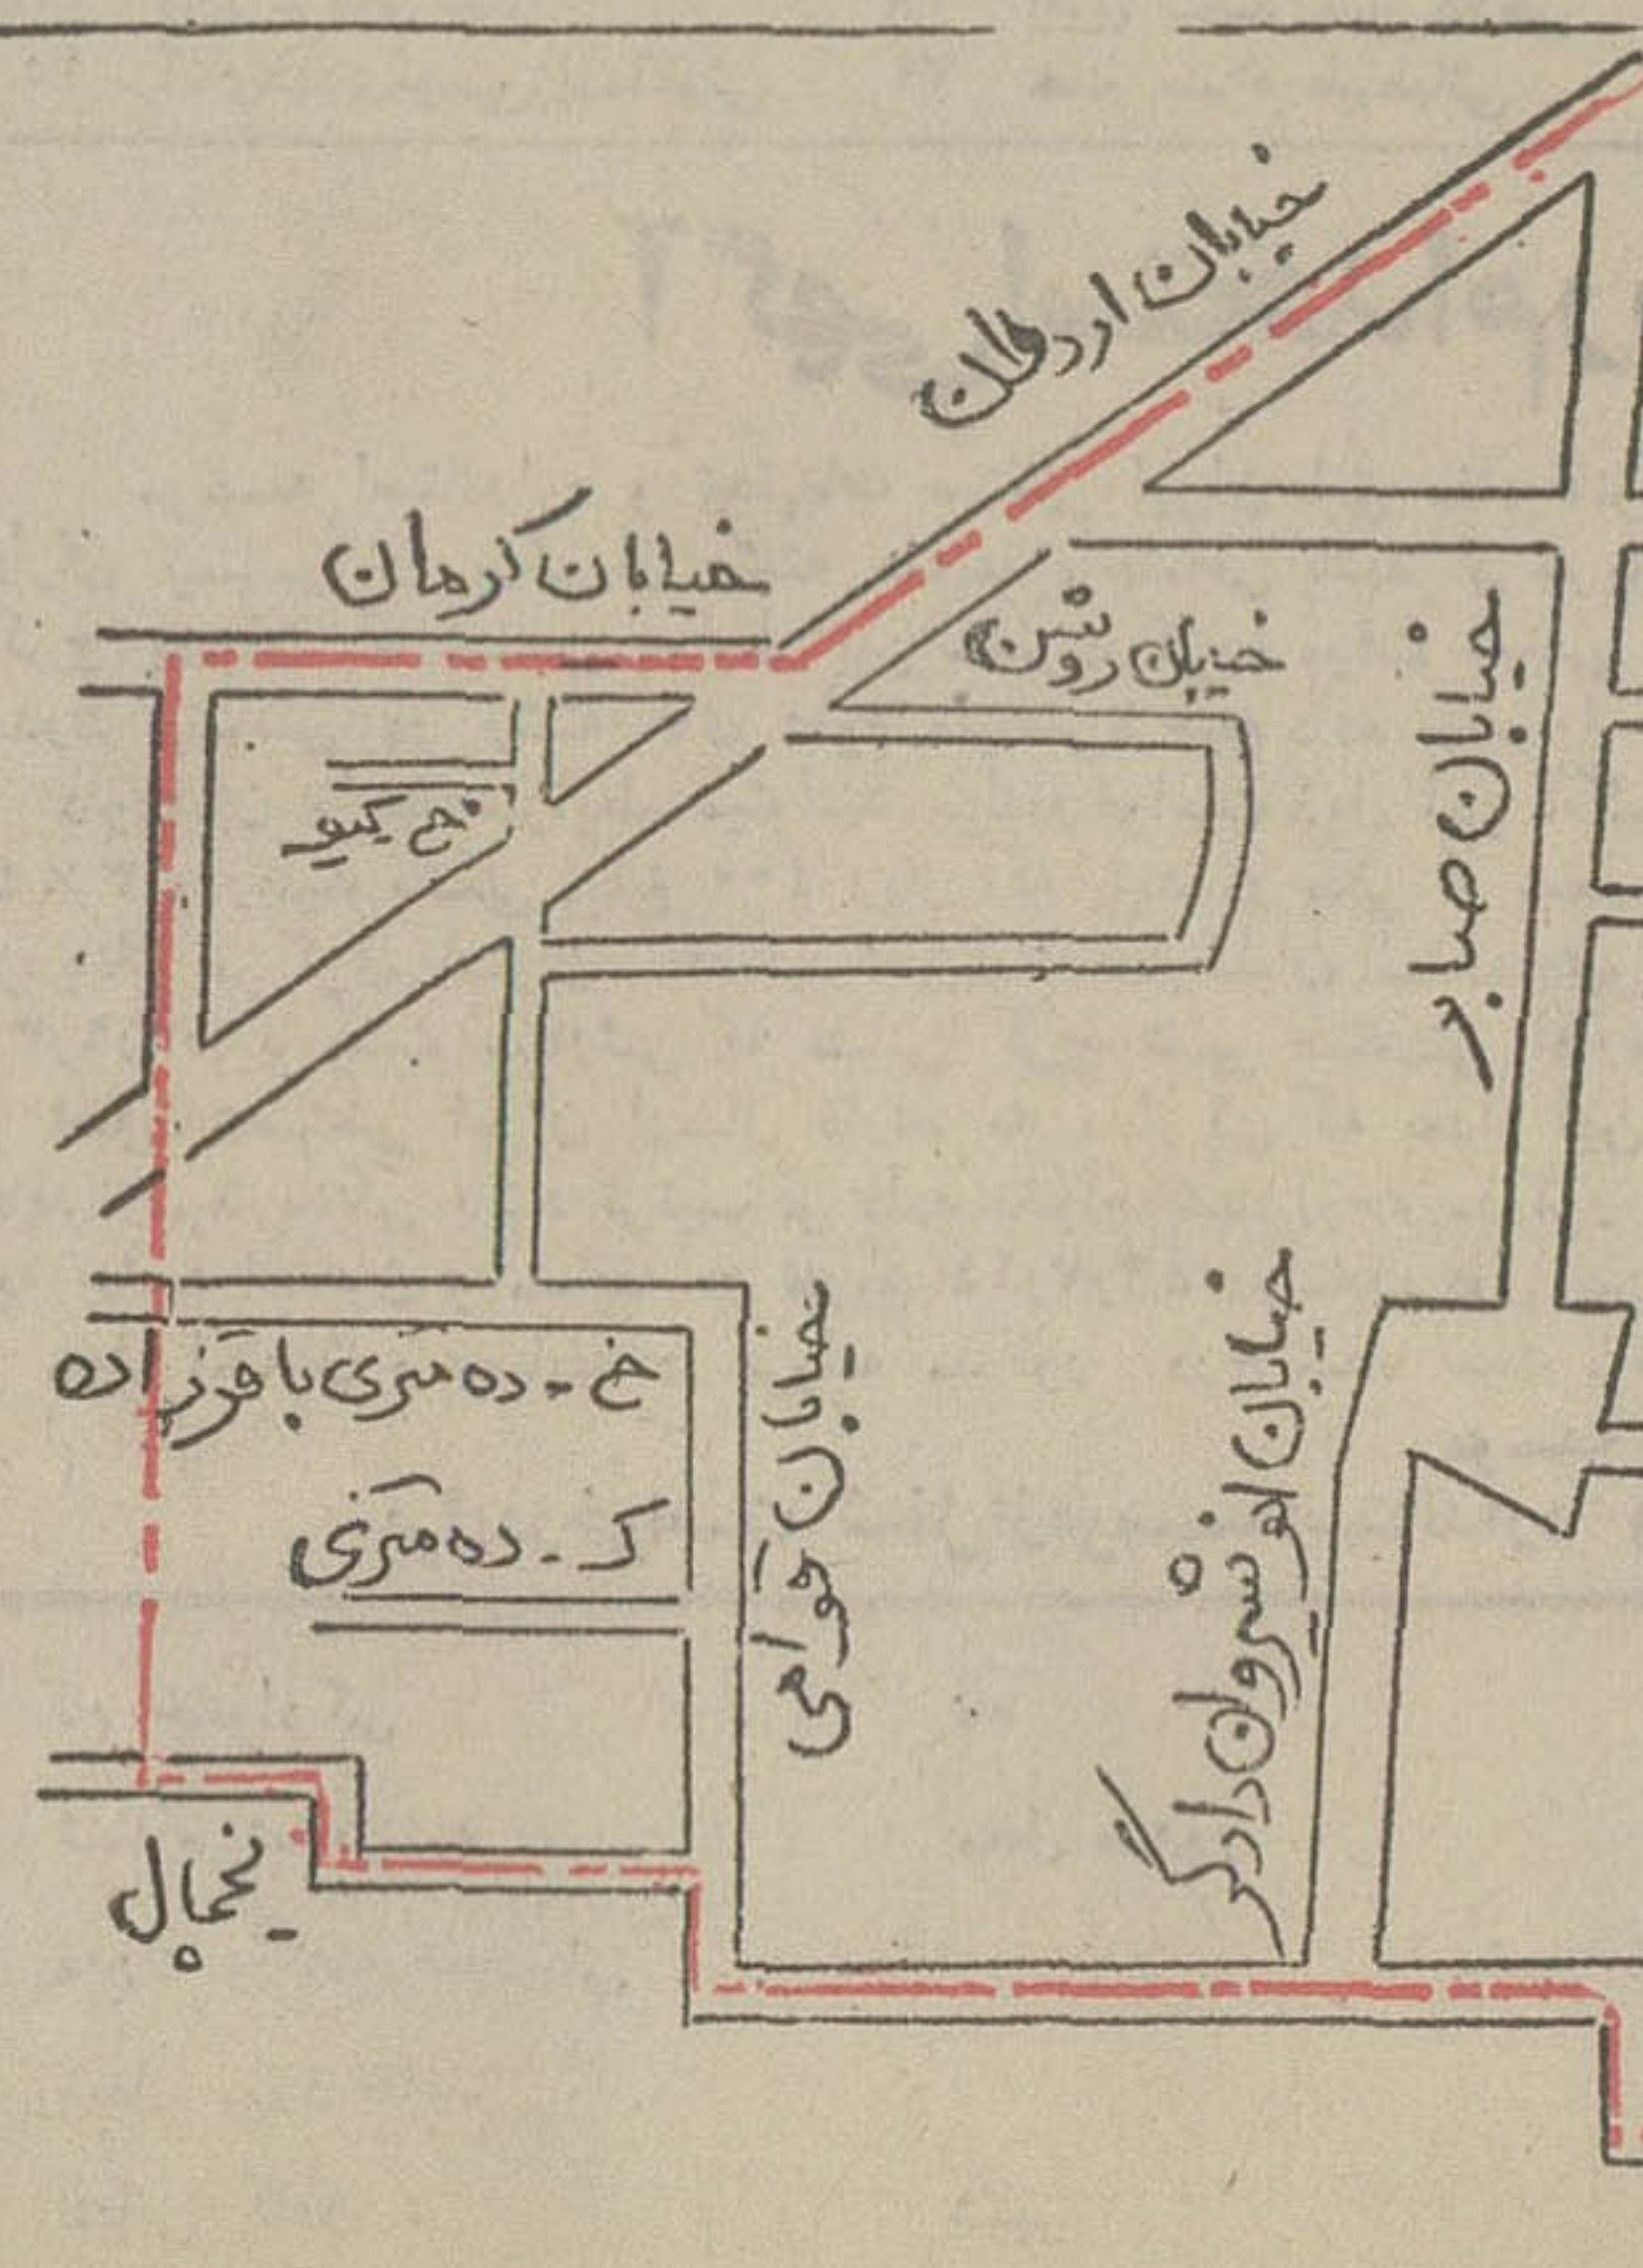 خیابان اردلان
خیابان کرمان
خیابان روشن
خیابان صابر
خ گیو
خ - ده متری باقرزاده
ک - ده متری
خیابان قوامی
خیابان انوشیروان دادگر
یخچال